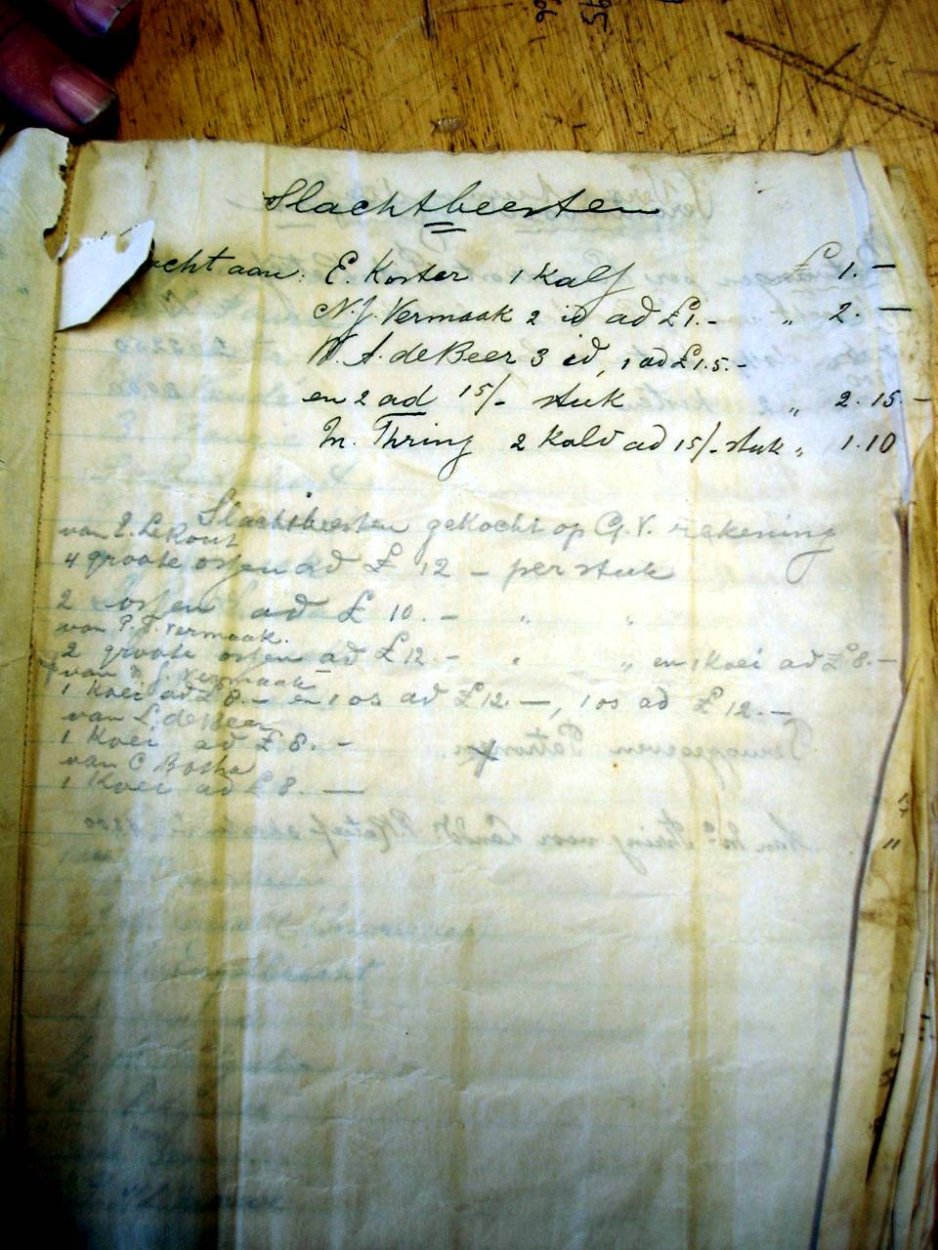 Slachtbeesten
ocht aan: E. Koster 1 Kalf £ 1.-
N.J. Vermaak 2 id ad £1.- " 2. -
A. de Beer 3 id, 1 ad £1.5.-
en 2 ad 15/- stuk " 2.15.-
M. Thring 2 Kalv ad 15/- stuk " 1.10
Slachtbeesten gekocht op G.V. rekening
van
4 groote ossen ad £ 12 - per stuk
2 ossen ad £ 10.- " "
van P.J. Vermaak.
2 groote ossen ad £12.- " " en 1 Koei ad £8.-
van J. Vermaak
1 Koei ad £8.- en 1 os ad £12.-, 1 os ad £12.-
van L. de Beer
1 Koei ad £8.-
van C Botha
1 Koei ad £8. -